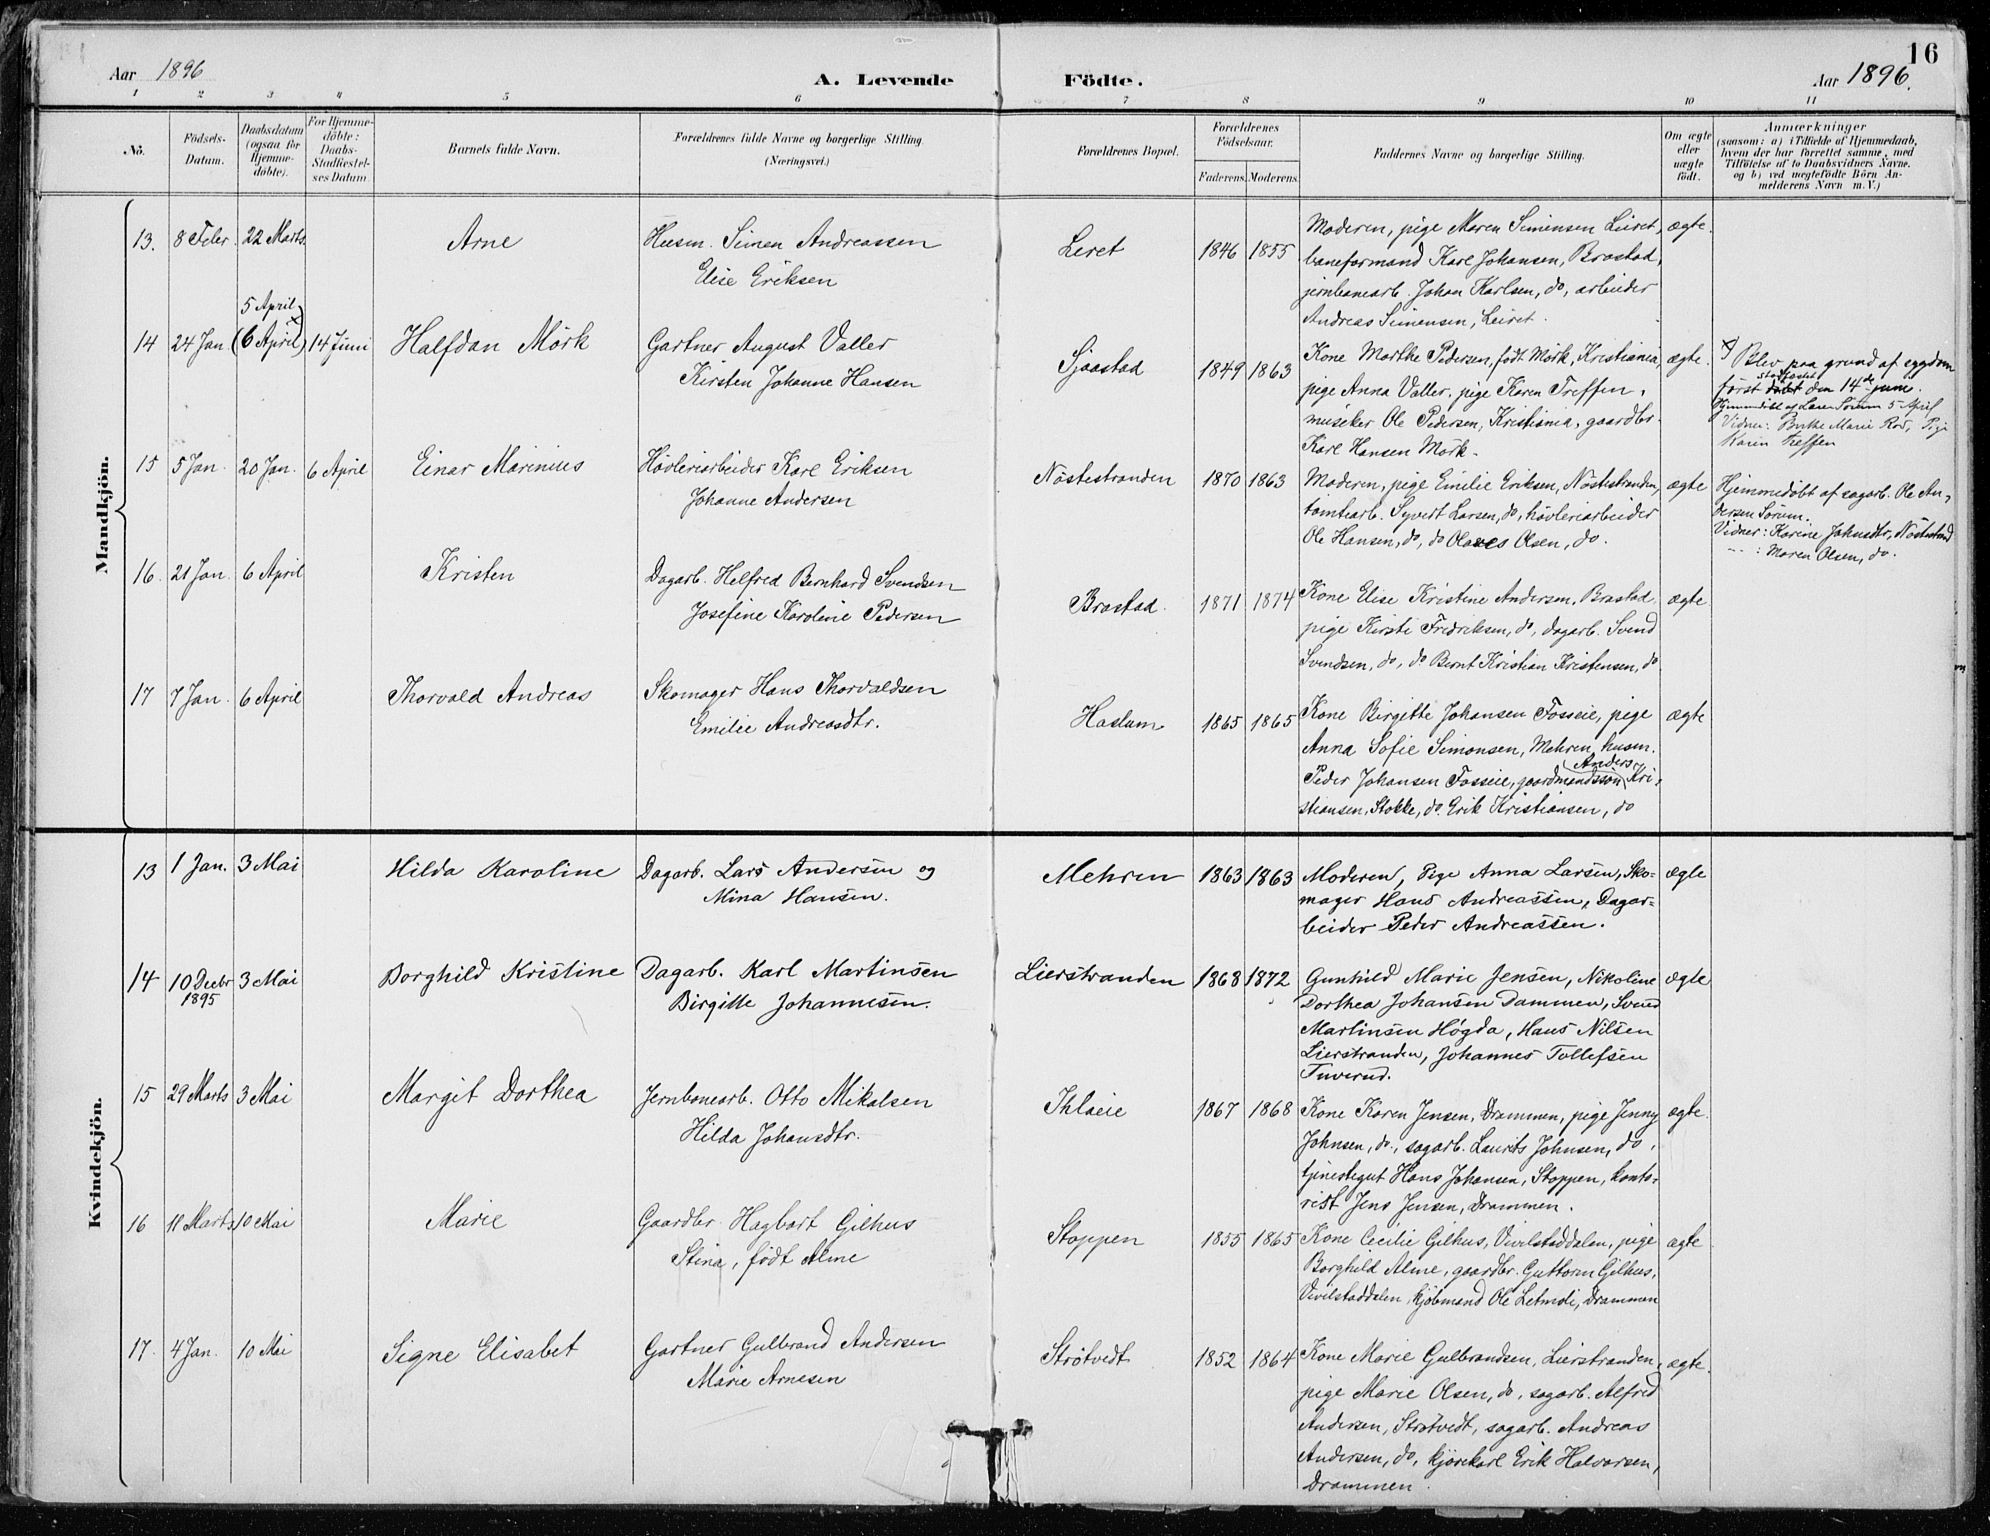 16
Aar 1896
A. Levende Födte.
Aar 1896.
1 2 3 4 5 6 7 8 9 10 11
No.
Födsels-
Datum.
Daabsdatum
(ogsaa for
Hjemme-
döbte).
For Hjemme-
döbte:
Daabs-
Stadfæstel-
ses Datum
Barnets fulde Navn.
Forældrenes fulde Navne og borgerlige Stilling
(Næringsvei.)
Forældrenes Bopæl.
Forældrenes
Födselsaar.
Faderens. Moderens.
Faddernes Navne og borgerlige Stilling.
Om ægte
eller
uægte
födt.
Anmærkninger
(saasom: a) i Tilfælde af Hjemmedaab,
hvem der har forrettet samme, med
Tilföielse af to Daabsvidners Navne.
og b) ved uægtefödte Börn An-
melderens Navn m.V.)
Mandkjön.
13. 8 Febr. 22 Marts. Arne
Husm. Simen Andreassen
Elise Eriksen
Leret 1846 1855
Moderen, pige Maren Simensen Leiret, ægte.
baneformand Karl Johansen, Brastad,
jernbanearb. Johan Karlsen, do, arbeider
Andreas Simensen, Leiret.
5 April x
14 24 Jan (6 April) 14 Juni Halfdan Mörk
Gartner August Valler
Kirsten Johanne Hansen
Sjaastad 1849 1863
Kone Marthe Pedersen, født Mörk, Kristiania, ægte.
pige Anna Valler, pige Karen Treffen,
musiker Ole Pedersen, Kristiania, gaardbr.
Karl Hansen Mörk.
x) Blev paa grund af sygdom
stadfæstet
först döbt den 14de juni.
Hjemmedöbt af Lars Sørum 5 April
Vidner: Berthe Marie Rod, Pige
Karen Treffen
15 5 Jan. 20 Jan. 6 April Einar Marinius
Hövleriarbeider Karl Eriksen
Johanne Andersen
Nöstestranden 1870 1863
Moderen, pige Emilie Eriksen, Nöstestranden, ægte
tomtearb. Syvert Larsen, do, hövleriarbeider
Ole Hansen, do, do Olaves Olsen, do.
Hjemmedöbt af sagarb. Ole An-
dersen Sörum.
Vidner: Karine Johnsdtr, Nöstestrand
" : Maren Olsen, do.
16. 21 Jan. 6 April Kristen
Dagarb. Helfred Bernhard Svendsen
Josefine Karoline Pedersen
Brastad. 1871 1874
Kone Elise Kristine Andersen, Brastad, ægte
pige Kirsti Fredriksen, do, dagarb. Svend
Svendsen, do, do Bernt Kristian Kristensen, do
17 7 Jan. 6 April Thorvald Andreas
Skomager Hans Thorvaldsen
Emilie Andreasdtr.
Haslum 1865 1865
Kone Birgitte Johansen Fosseie, pige ægte
Anna Sofie Simonsen, Mehren, husm.
Anders
Peder Johansen Fosseie, gaardmandssön Kri-
stiansen, Stokke, do. Erik Kristiansen, do
Kvindekjön.
13 1 Jan. 3 Mai Hilda Karoline
Dagarb. Lars Andersen og
Mina Hansen.
Mehren 1863 1863
Moderen, Pige Anna Larsen, Sko- ægte
mager Hans Andreassen, Dagar-
beider Peder Andreassen.
14 10 Decbr 1895 3 Mai Borghild Kristine
Dagarb. Karl Martinsen
Birgitte Johannesen.
Lierstranden 1868 1872
Gunhild Marie Jensen, Nikoline ægte
Dorthea Johansen Dammen, Svend
Martinsen Høgda, Hans Nilsen
Lierstranden, Johannes Tollefsen
Tuverud.
15 29 Marts 3 Mai Margit Dorthea
Jernbanearb. Otto Mikalsen
Hilda Johansdtr.
Ihlaeie 1867 1868
Kone Karen Jensen, Drammen, pige Jenny ægte.
Johnsen, do., sagarb. Laurits Johnsen, do,
tjenestegut Hans Johansen, Stoppen, konto-
rist Jens Jensen, Drammen.
16 11 Marts 10 Mai Marie
Gaardbr. Hagbart Gilhus
Stina, född Alme
Stoppen 1855 1865
Kone Cecilie Gilhus, Vivilstaddalen, pige ægte
Borghild Alme, gaardbr. Guttorm Gilhus,
Vivilstaddalen, kjöbmand Ole Letmoli, Drammen
17. 4 Jan. 10 Mai Signe Elisabet
Gartner Gulbrand Andersen
Marie Arnesen
Ströтvedt 1852 1864
Kone Marie Gulbrandsen, Lierstranden, ægte.
pige Marie Olsen, do, sagarb. Alfred
Andersen, Strötvedt, sagarb. Andreas
Andersen, do, kjørekarl Erik Halvorsen,
Drammen.